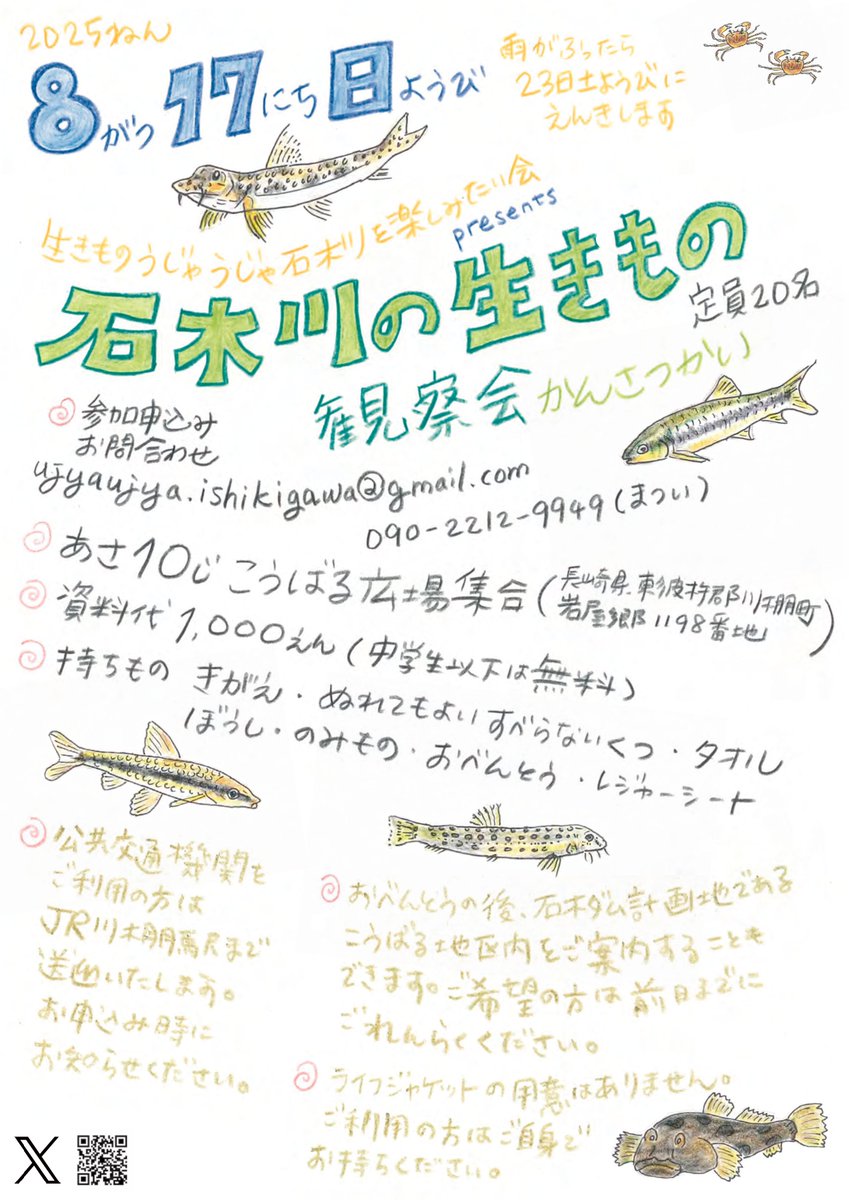 2025ねん
8がつ17にち日ようび
雨がふったら
23日土ようびに
えんきします
生きものうじゃうじゃ石木川を楽しみたい会
presents
石木川の生きもの
定員20名
観察会かんさつかい
参加申込み
お問合わせ
ujyaujya.ishikigawa@gmail.com
090-2212-9949(まつい)
あさ10じこうばる広場集合(長崎県東彼杵郡川棚町
岩屋郷1198番地)
資料代1,000えん(中学生以下は無料)
持ちもの きがえ・ぬれてもよいすべらないくつ・タオル
ぼうし・のみもの・おべんとう・レジャーシート
公共交通機関を
ご利用の方は
JR川棚駅まで
送迎いたします。
お申込み時に
お知らせください。
おべんとうの後、石木ダム計画地である
こうばる地区内をご案内することも
できます。ご希望の方は前日までに
ごれんらくください。
ライフジャケットの用意はありません。
ご利用の方はご自身で
お持ちください。
X